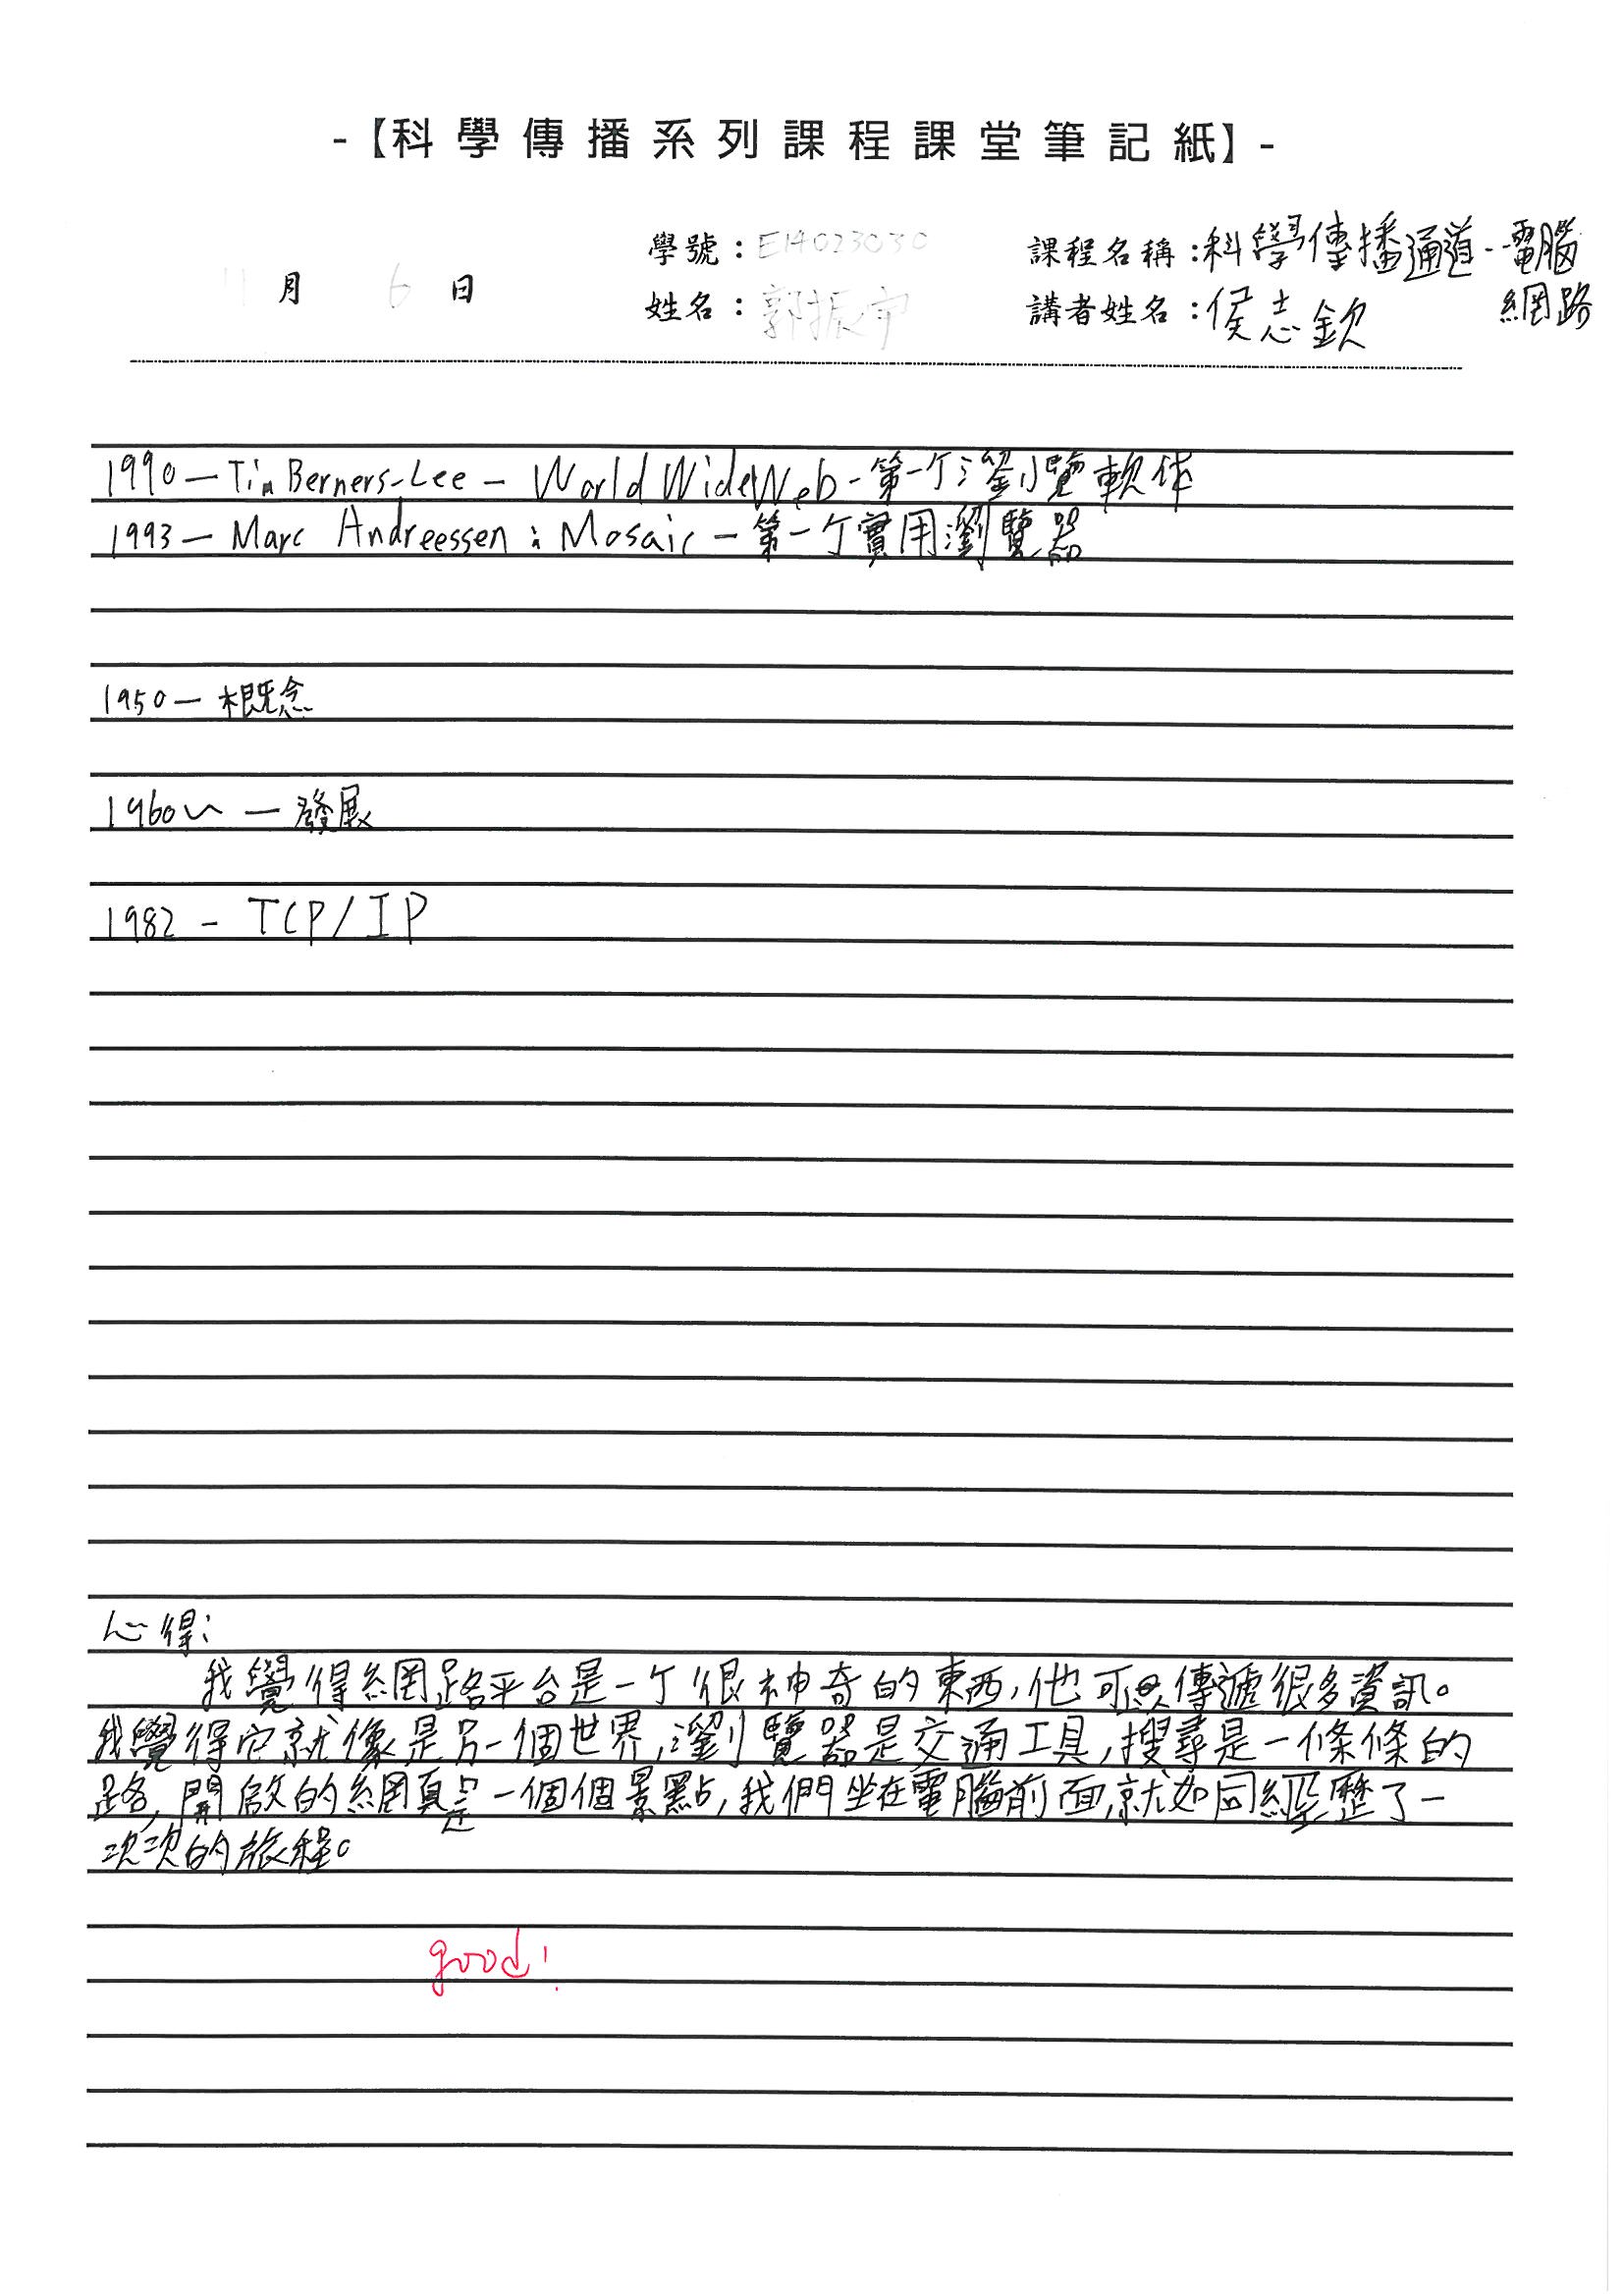 -【科學傳播系列課程課堂筆記紙】-
11月 6 日
學號：E14023030
課程名稱：科學傳播通道--電腦網路
姓名：郭振宇
講者姓名：侯志欽
1990—Tim Berners-Lee—WorldWideWeb-第一个瀏覽軟体
1993—Marc Andreessen：Mosaic—第一个實用瀏覽器
1950—概念
1960~—發展
1982-TCP/IP
心得：
我覺得網路平台是一个很神奇的東西,他可以傳遞很多資訊。
我覺得它就像是另一個世界,瀏覽器是交通工具,搜尋是一條條的
路,開啟的網頁是一個個景點,我們坐在電腦前面,就如同經歷了一
次次的旅程。
good!